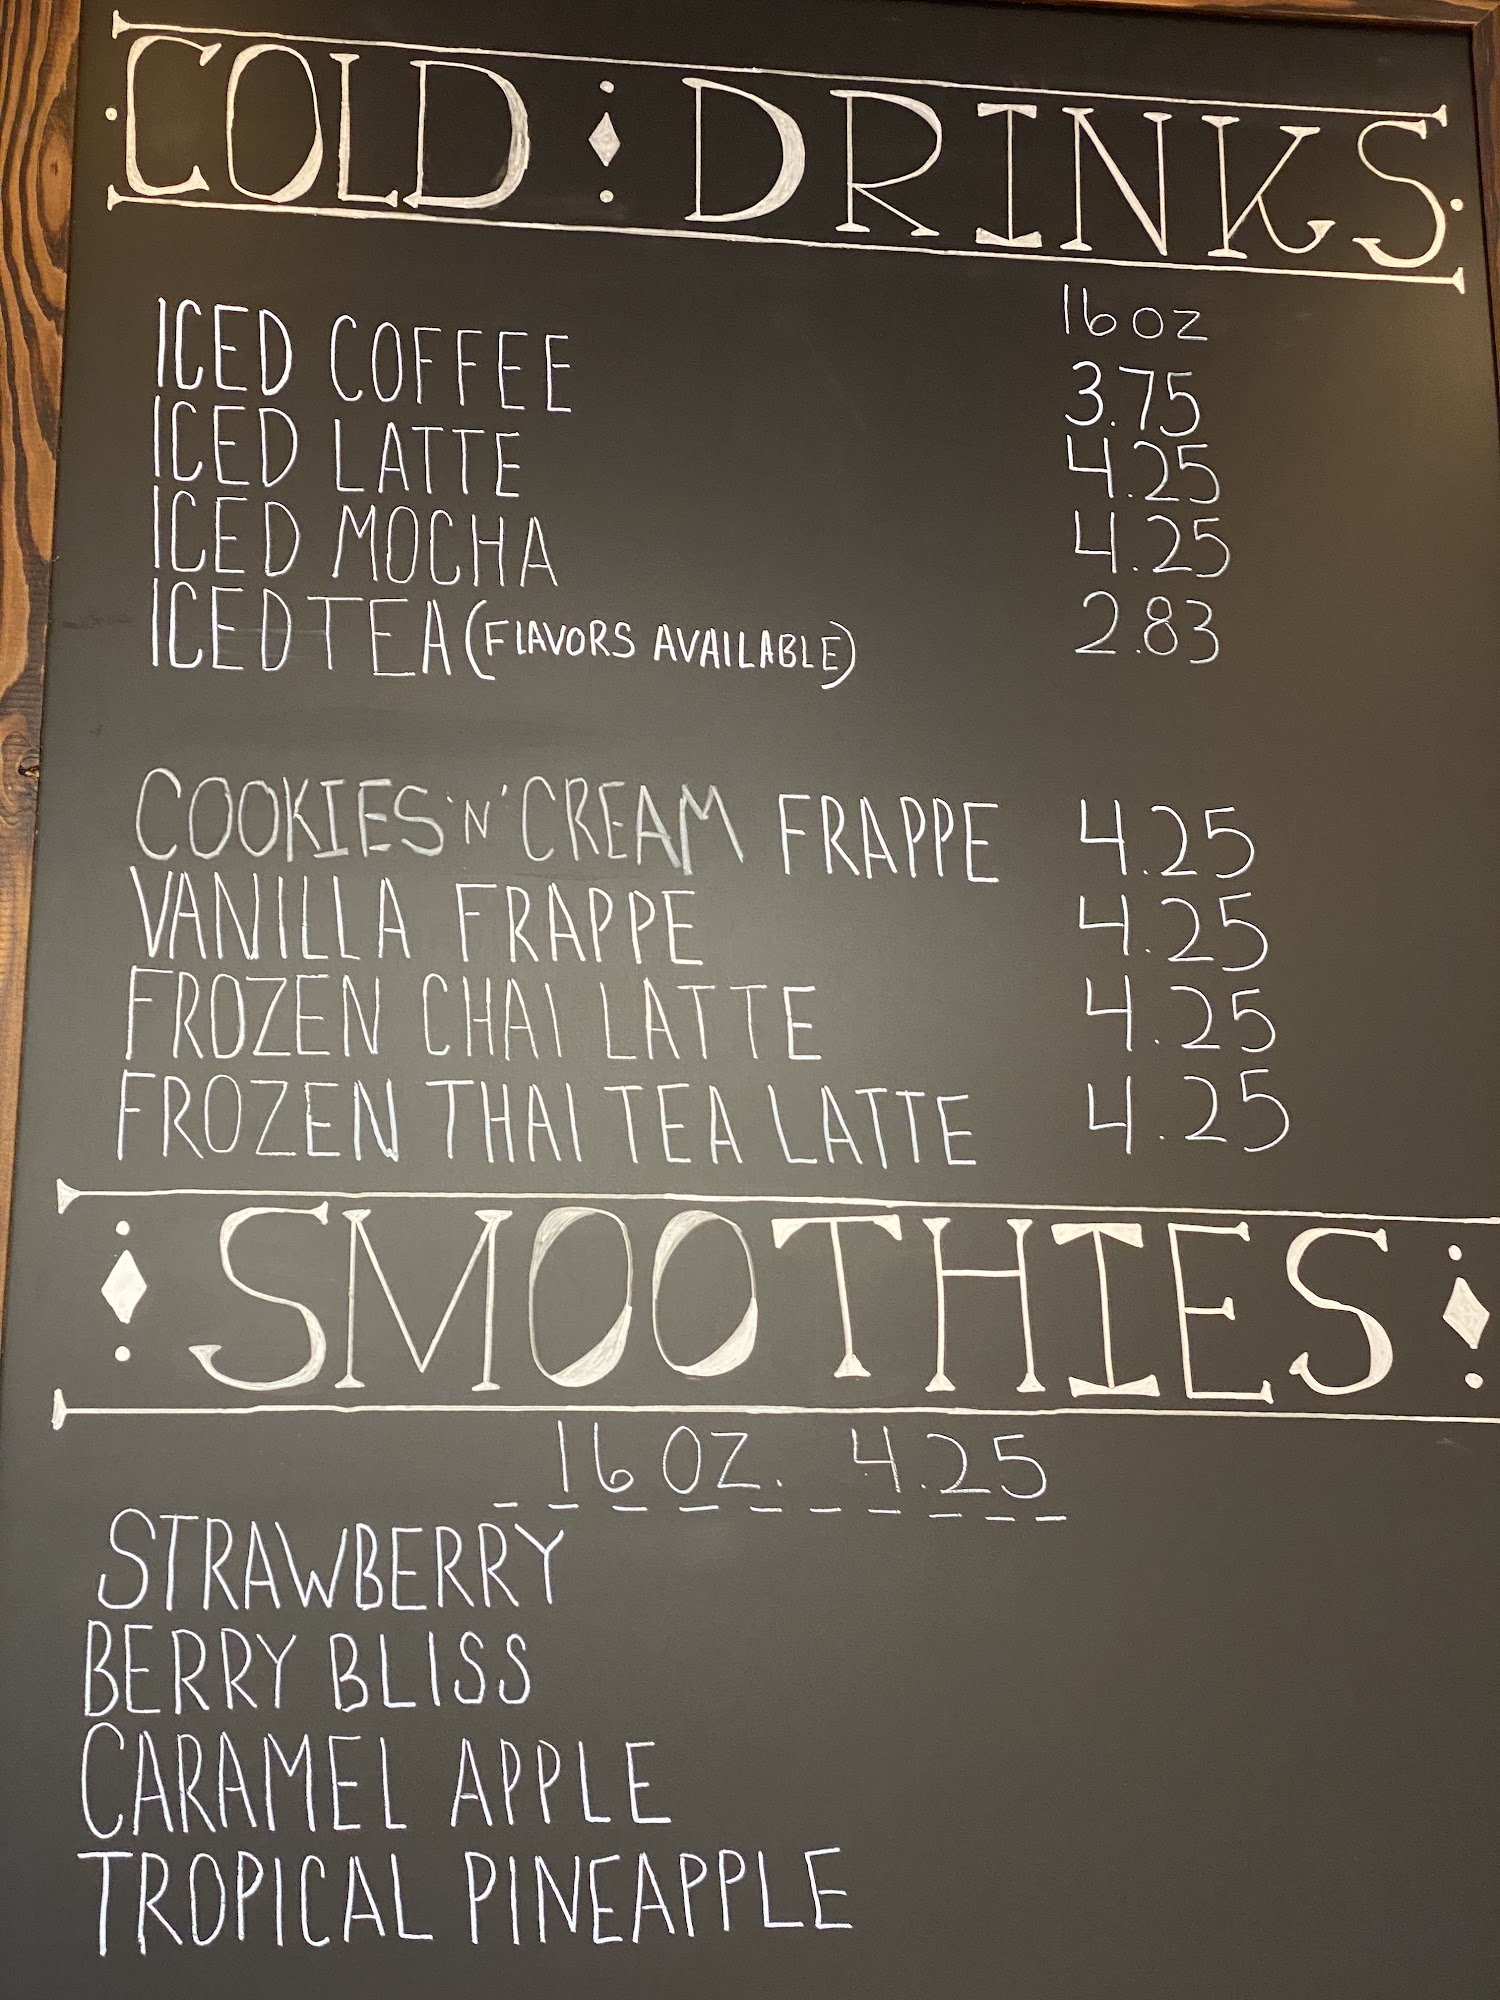 COLD DRINKS
16 OZ
ICED COFFEE 3.75
ICED LATTE 4.25
ICED MOCHA 4.25
ICED TEA (FLAVORS AVAILABLE) 2.83
COOKIES 'N' CREAM FRAPPE 4.25
VANILLA FRAPPE 4.25
FROZEN CHAI LATTE 4.25
FROZEN THAI TEA LATTE 4.25
SMOOTHIES
16 OZ. 4.25
STRAWBERRY
BERRY BLISS
CARAMEL APPLE
TROPICAL PINEAPPLE